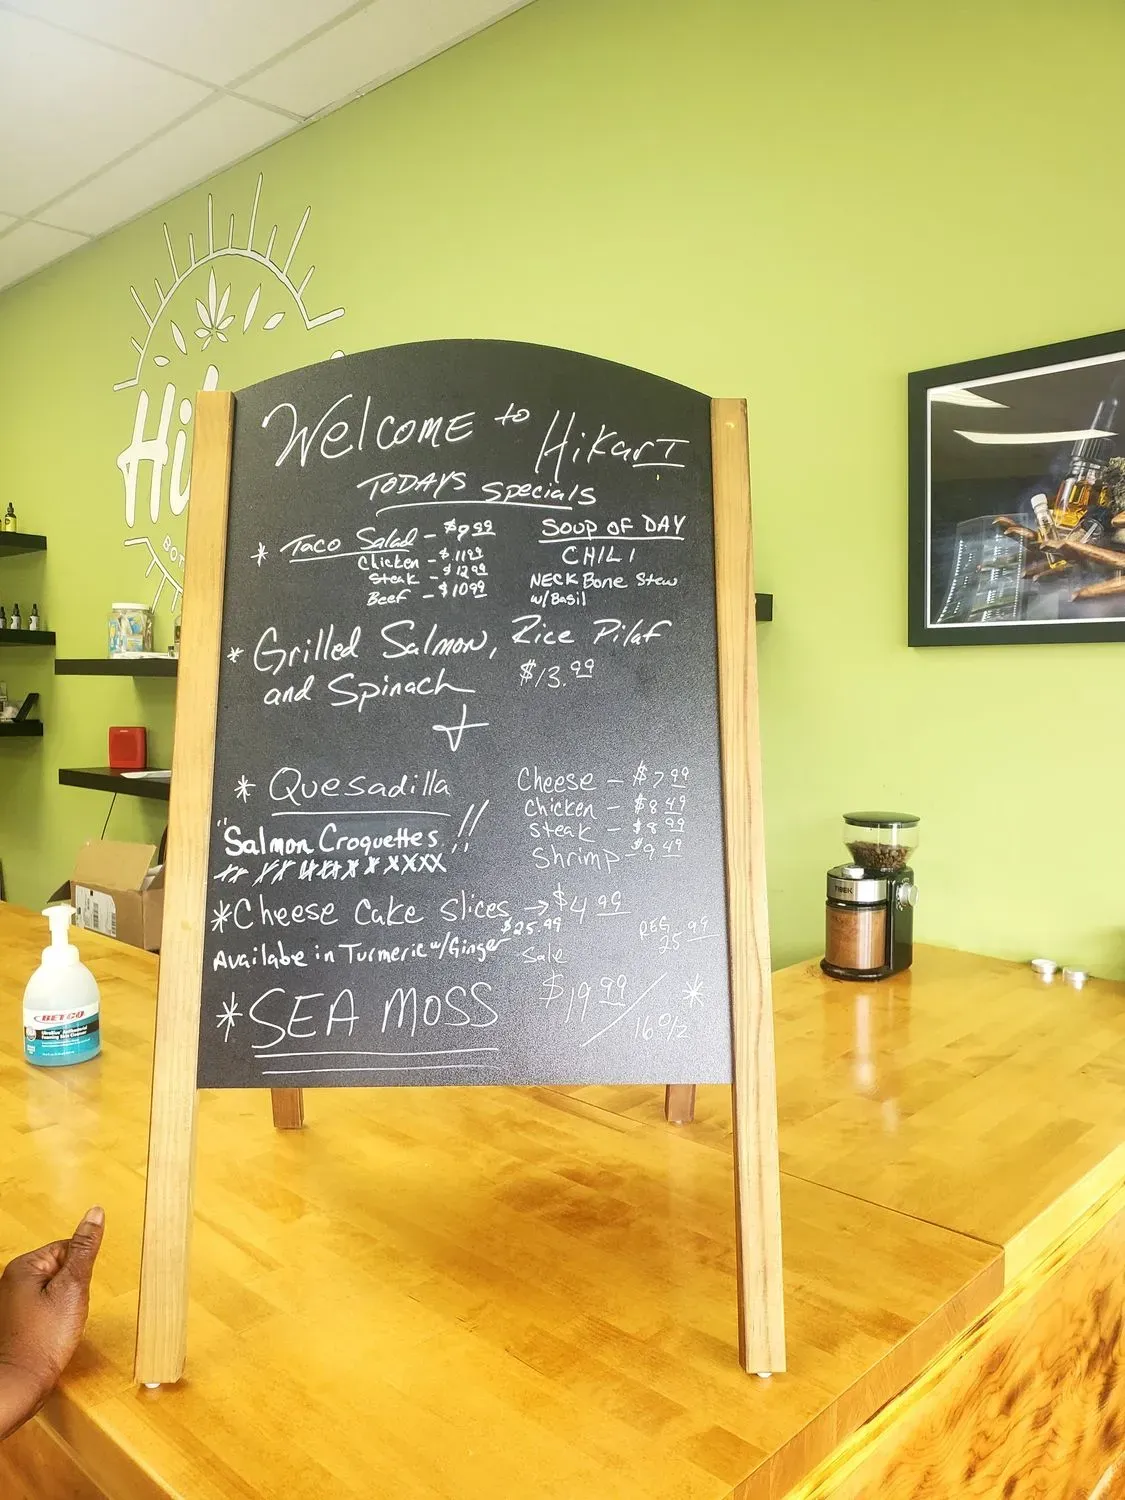 Welcome to Hikari
TODAYS Specials
* Taco Salad - $9.99
Chicken - $11.99
Steak - $12.99
Beef - $10.99
SOUP OF DAY
CHILI
NECK Bone Stew
w/Basil
* Grilled Salmon, Rice Pilaf
and Spinach $13.99
* Quesadilla
Cheese - $7.99
Chicken - $8.49
Steak - $8.99
Shrimp - $9.49
"Salmon Croquettes!!
* Cheese Cake slices → $4.99
Available in Turmeric w/Ginger
$25.99
Sale
REG
25.99
* SEA MOSS $19.99/16oz *
Hi
BOT
BETCO